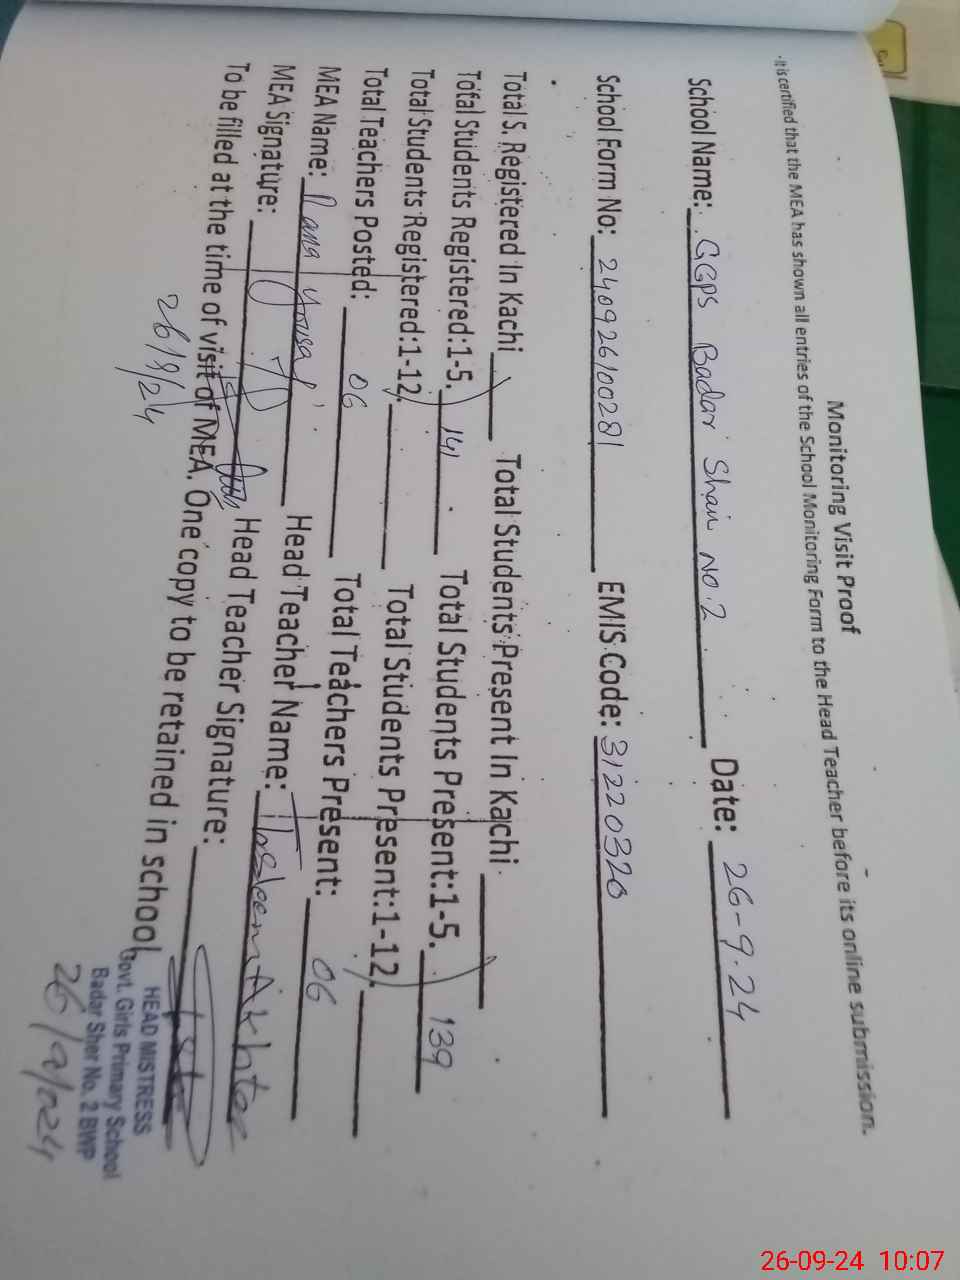 Monitoring Visit Proof
·It is certified that the MEA has shown all entries of the School Monitoring Form to the Head Teacher before its online submission.
School Name: GGPS Badar Shair No.2 Date: 26-9.24
School Form No: 240926100281 EMIS Code: 31220320
Total S. Registered In Kachi Total Students Present In Kachi
Total Students Registered:1-5. 141 Total Students Present:1-5. 139
Total Students Registered:1-12. Total Students Present:1-12.
Total Teachers Posted: 06 Total Teachers Present: 06
MEA Name: Rana Yousaf Head Teacher Name: Tasleem Akhtar
MEA Signature: Head Teacher Signature:
To be filled at the time of visit of MEA. One copy to be retained in school.
26/9/24
HEAD MISTRESS
Govt. Girls Primary School
Badar Sher No. 2 BWP
26-09-24 10:07